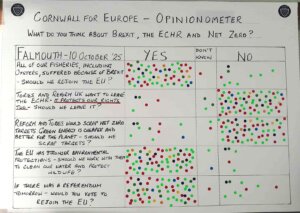 CORNWALL FOR EUROPE - OPINIONOMETER
WHAT DO YOU THINK ABOUT BREXIT, THE ECHR AND NET ZERO?
FALMOUTH - 10 OCTOBER '25
YES
DON'T KNOW
NO
ALL OF OUR FISHERIES, INCLUDING
OYSTERS, SUFFERED BECAUSE OF BREXIT
- SHOULD WE REJOIN THE EU?
TORIES AND REFORM UK WANT TO LEAVE
THE ECHR. IT PROTECTS OUR RIGHTS
- SHOULD WE LEAVE IT?
REFORM AND TORIES WOULD SCRAP NET ZERO
TARGETS. GREEN ENERGY IS CHEAPER AND
BETTER FOR THE PLANET - SHOULD WE
SCRAP TARGETS?
THE EU HAS STRONGER ENVIRONMENTAL
PROTECTIONS - SHOULD WE WORK WITH THEM
TO CLEAN OUR WATER AND PROTECT
WILDLIFE?
IF THERE WAS A REFERENDUM
TOMORROW - WOULD YOU VOTE TO
REJOIN THE EU?